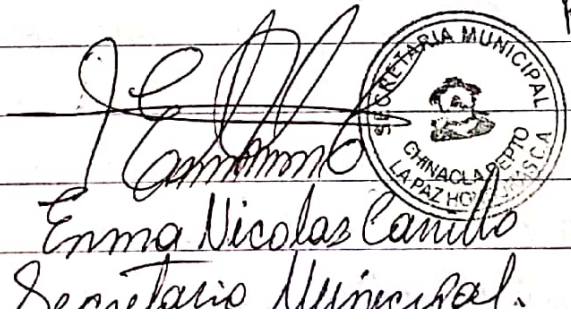 SECRETARIA MUNICIPAL
CHINACLA DEPTO
LA PAZ
Enma Nicolas Carrillo
Secretario Municipal.